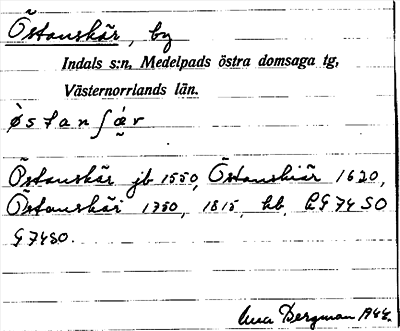 Östanskär, by
Indals s:n, Medelpads östra domsaga tg,
Västernorrlands län.
ø̀stanʃæ̀r
Östanskär jb 1550, Östanskiär 1620,
Östanskär 1750, 1815, kb, LG 7450
G 7450.
Bergman 1944.